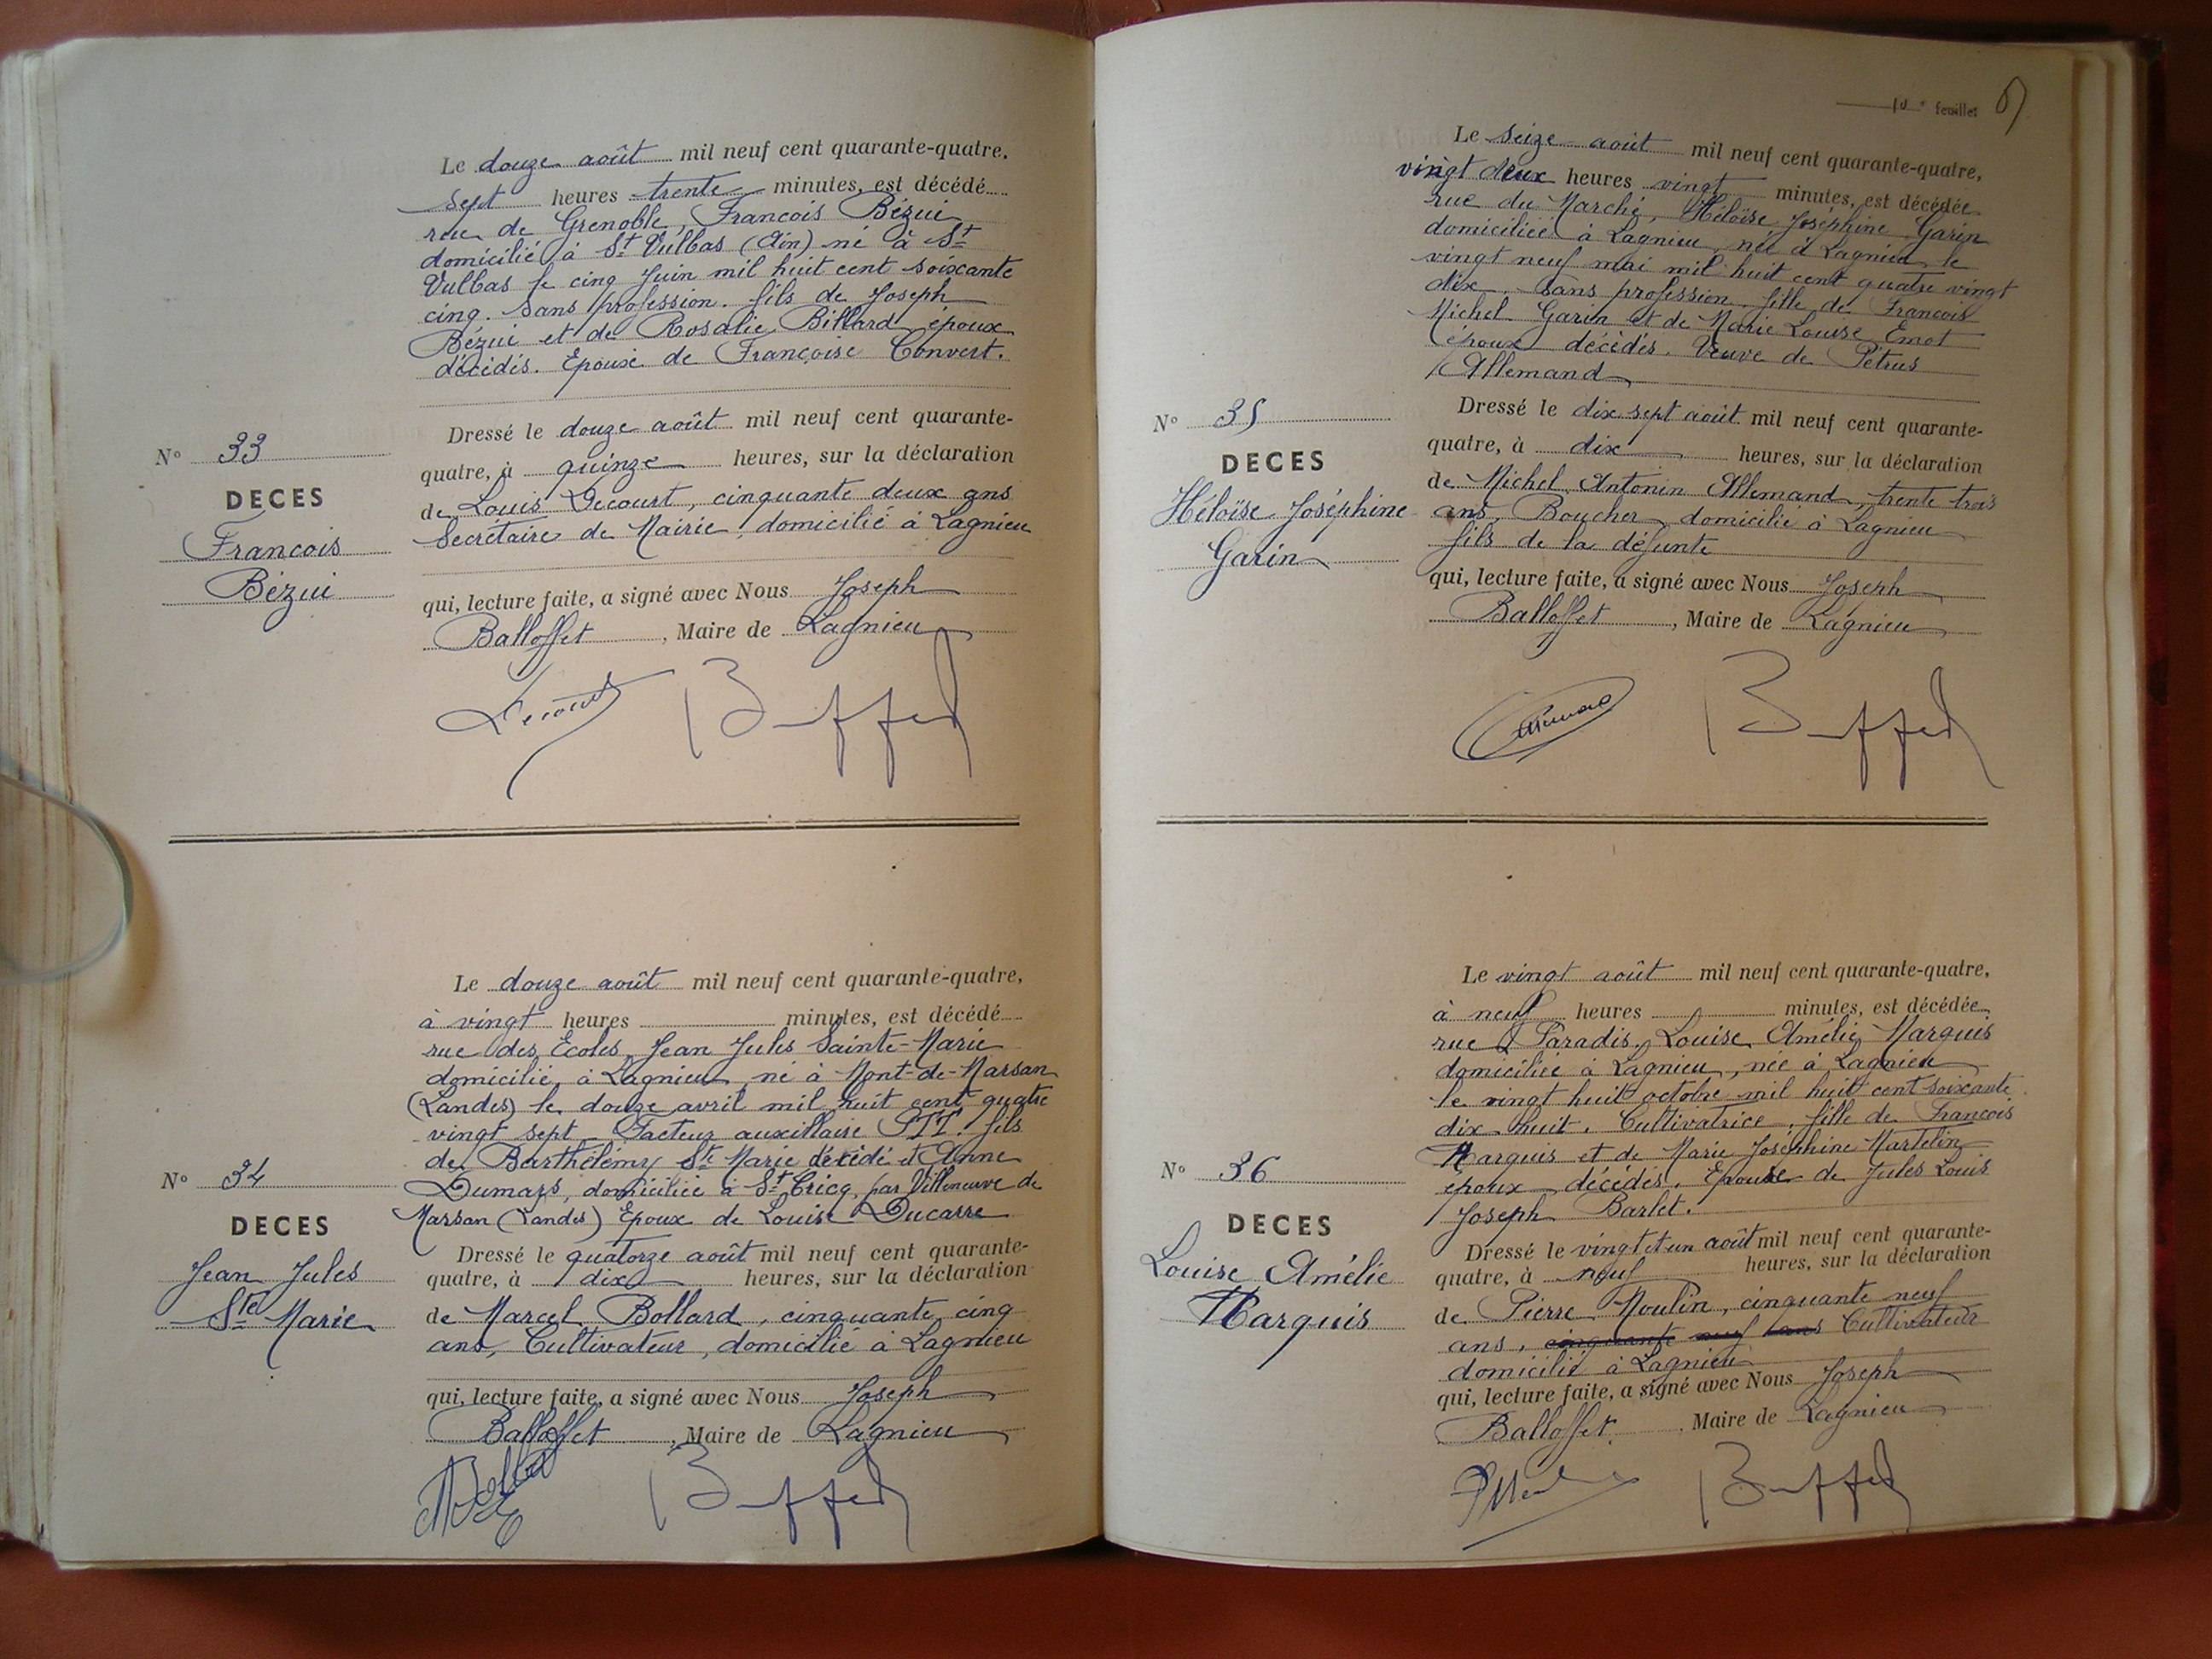 Le douze août mil neuf cent quarante-quatre,
sept heures trente minutes, est décédé
rue de Grenoble, François Bézui
domicilié à St Vulbas (Ain) né à St
Vulbas le cinq Juin mil huit cent soixante
cinq. Sans profession. fils de Joseph
Bézui et de Rosalie Billard époux
décédés. Epoux de Françoise Convert.
Nº 33
DECES
François
Bézui
Dressé le douze août mil neuf cent quarante-
quatre, à quinze heures, sur la déclaration
de Louis Decourt, cinquante deux ans
Secrétaire de Mairie, domicilié à Lagnieu
qui, lecture faite, a signé avec Nous Joseph
Balloffet, Maire de Lagnieu
Le douze août mil neuf cent quarante-quatre,
à vingt heures minutes, est décédé
rue des Ecoles, Jean Jules Sainte-Marie
domicilié à Lagnieu, né à Mont-de-Marsan
(Landes) le douze avril mil huit cent quatre
vingt sept Facteur auxiliaire PTT. fils
de Barthélémy Ste Marie décédé et Anne
domiciliée à St Cricq par Villeneuve de
Marsan (Landes) Epoux de Louise Ducasse
Nº 34
DECES
Jean Jules
Ste Marie
Dressé le quatorze août mil neuf cent quarante-
quatre, à dix heures, sur la déclaration
de Marcel Bollard, cinquante cinq
ans, Cultivateur, domicilié à Lagnieu
qui, lecture faite, a signé avec Nous Joseph
Balloffet, Maire de Lagnieu
10e feuillet
Le seize août mil neuf cent quarante-quatre,
vingt deux heures vingt minutes, est décédée
rue du Marché, Héloïse Joséphine Garin
domiciliée à Lagnieu, née à Lagnieu le
vingt neuf mai mil huit cent quatre vingt
dix. Sans profession. fille de François
Michel Garin et de Marie Louise Emot
époux décédés. Veuve de Pétrus
Allemand
Nº 35
DECES
Héloïse Joséphine
Garin
Dressé le dix sept août mil neuf cent quarante-
quatre, à dix heures, sur la déclaration
de Michel Antonin Allemand, trente trois
ans, Boucher domicilié à Lagnieu
fils de la défunte
qui, lecture faite, a signé avec Nous Joseph
Balloffet, Maire de Lagnieu
Le vingt août mil neuf cent quarante-quatre,
à neuf heures minutes, est décédée
rue Paradis, Louise Amélie Marquis
domiciliée à Lagnieu, née à Lagnieu
le vingt huit octobre mil huit cent soixante
dix huit. Cultivatrice, fille de François
Marquis et de Marie Joséphine Martelin
époux décédés. Epouse de Jules Louis
Joseph Barlet.
Nº 36
DECES
Louise Amélie
Marquis
Dressé le vingt et un août mil neuf cent quarante-
quatre, à neuf heures, sur la déclaration
de Pierre Moulin, cinquante neuf
ans, cinquante neuf ans Cultivateur
domicilié à Lagnieu
qui, lecture faite, a signé avec Nous Joseph
Balloffet, Maire de Lagnieu